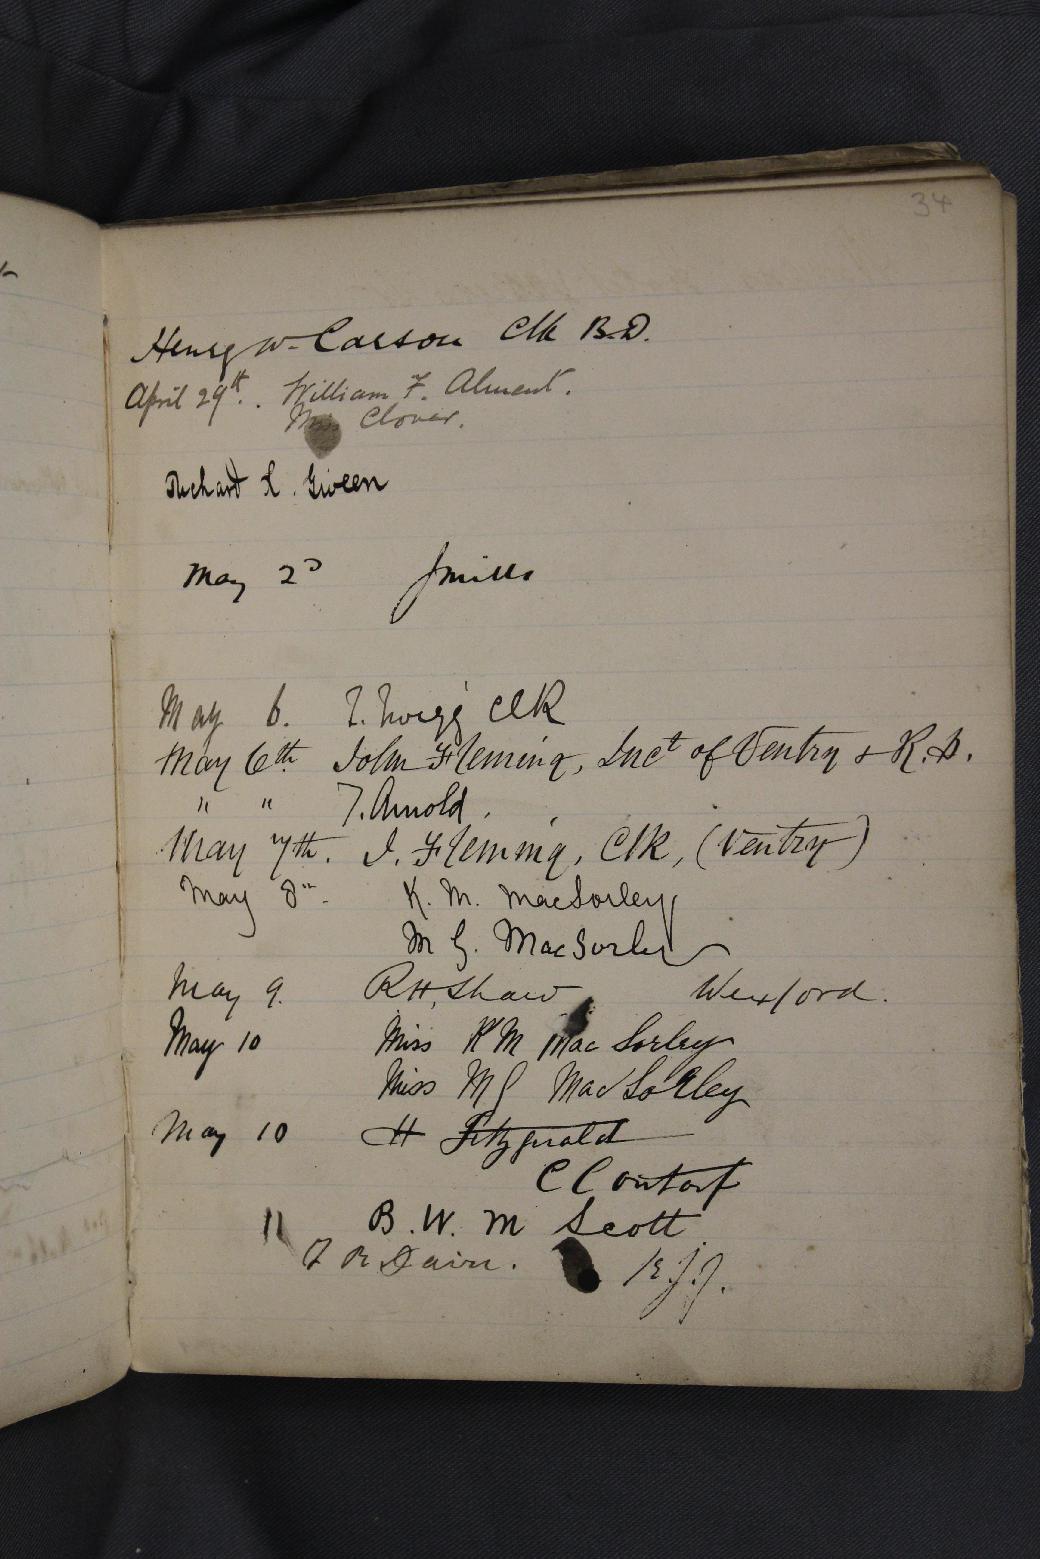 34
Henry W. Carson Clk B.D.
April 29th. William F. Alment.
Miss Clover.
Richard L. Gween
May 2D Jmills
May 6. T. Twigg ClK
May 6th John Fleming, Inct of Ventry & R.D.
" " T. Arnold.
May 7th. J. Fleming, Clk, (Ventry)
May 8th. K. M. MacSorley
M G. MacSorley
May 9. R H. Shaw Wexford.
May 10 Miss K M Mac Sorley
Miss M G MacSorley
May 10 H Fitzgerald
Clontarf
11 B. W. M Scott